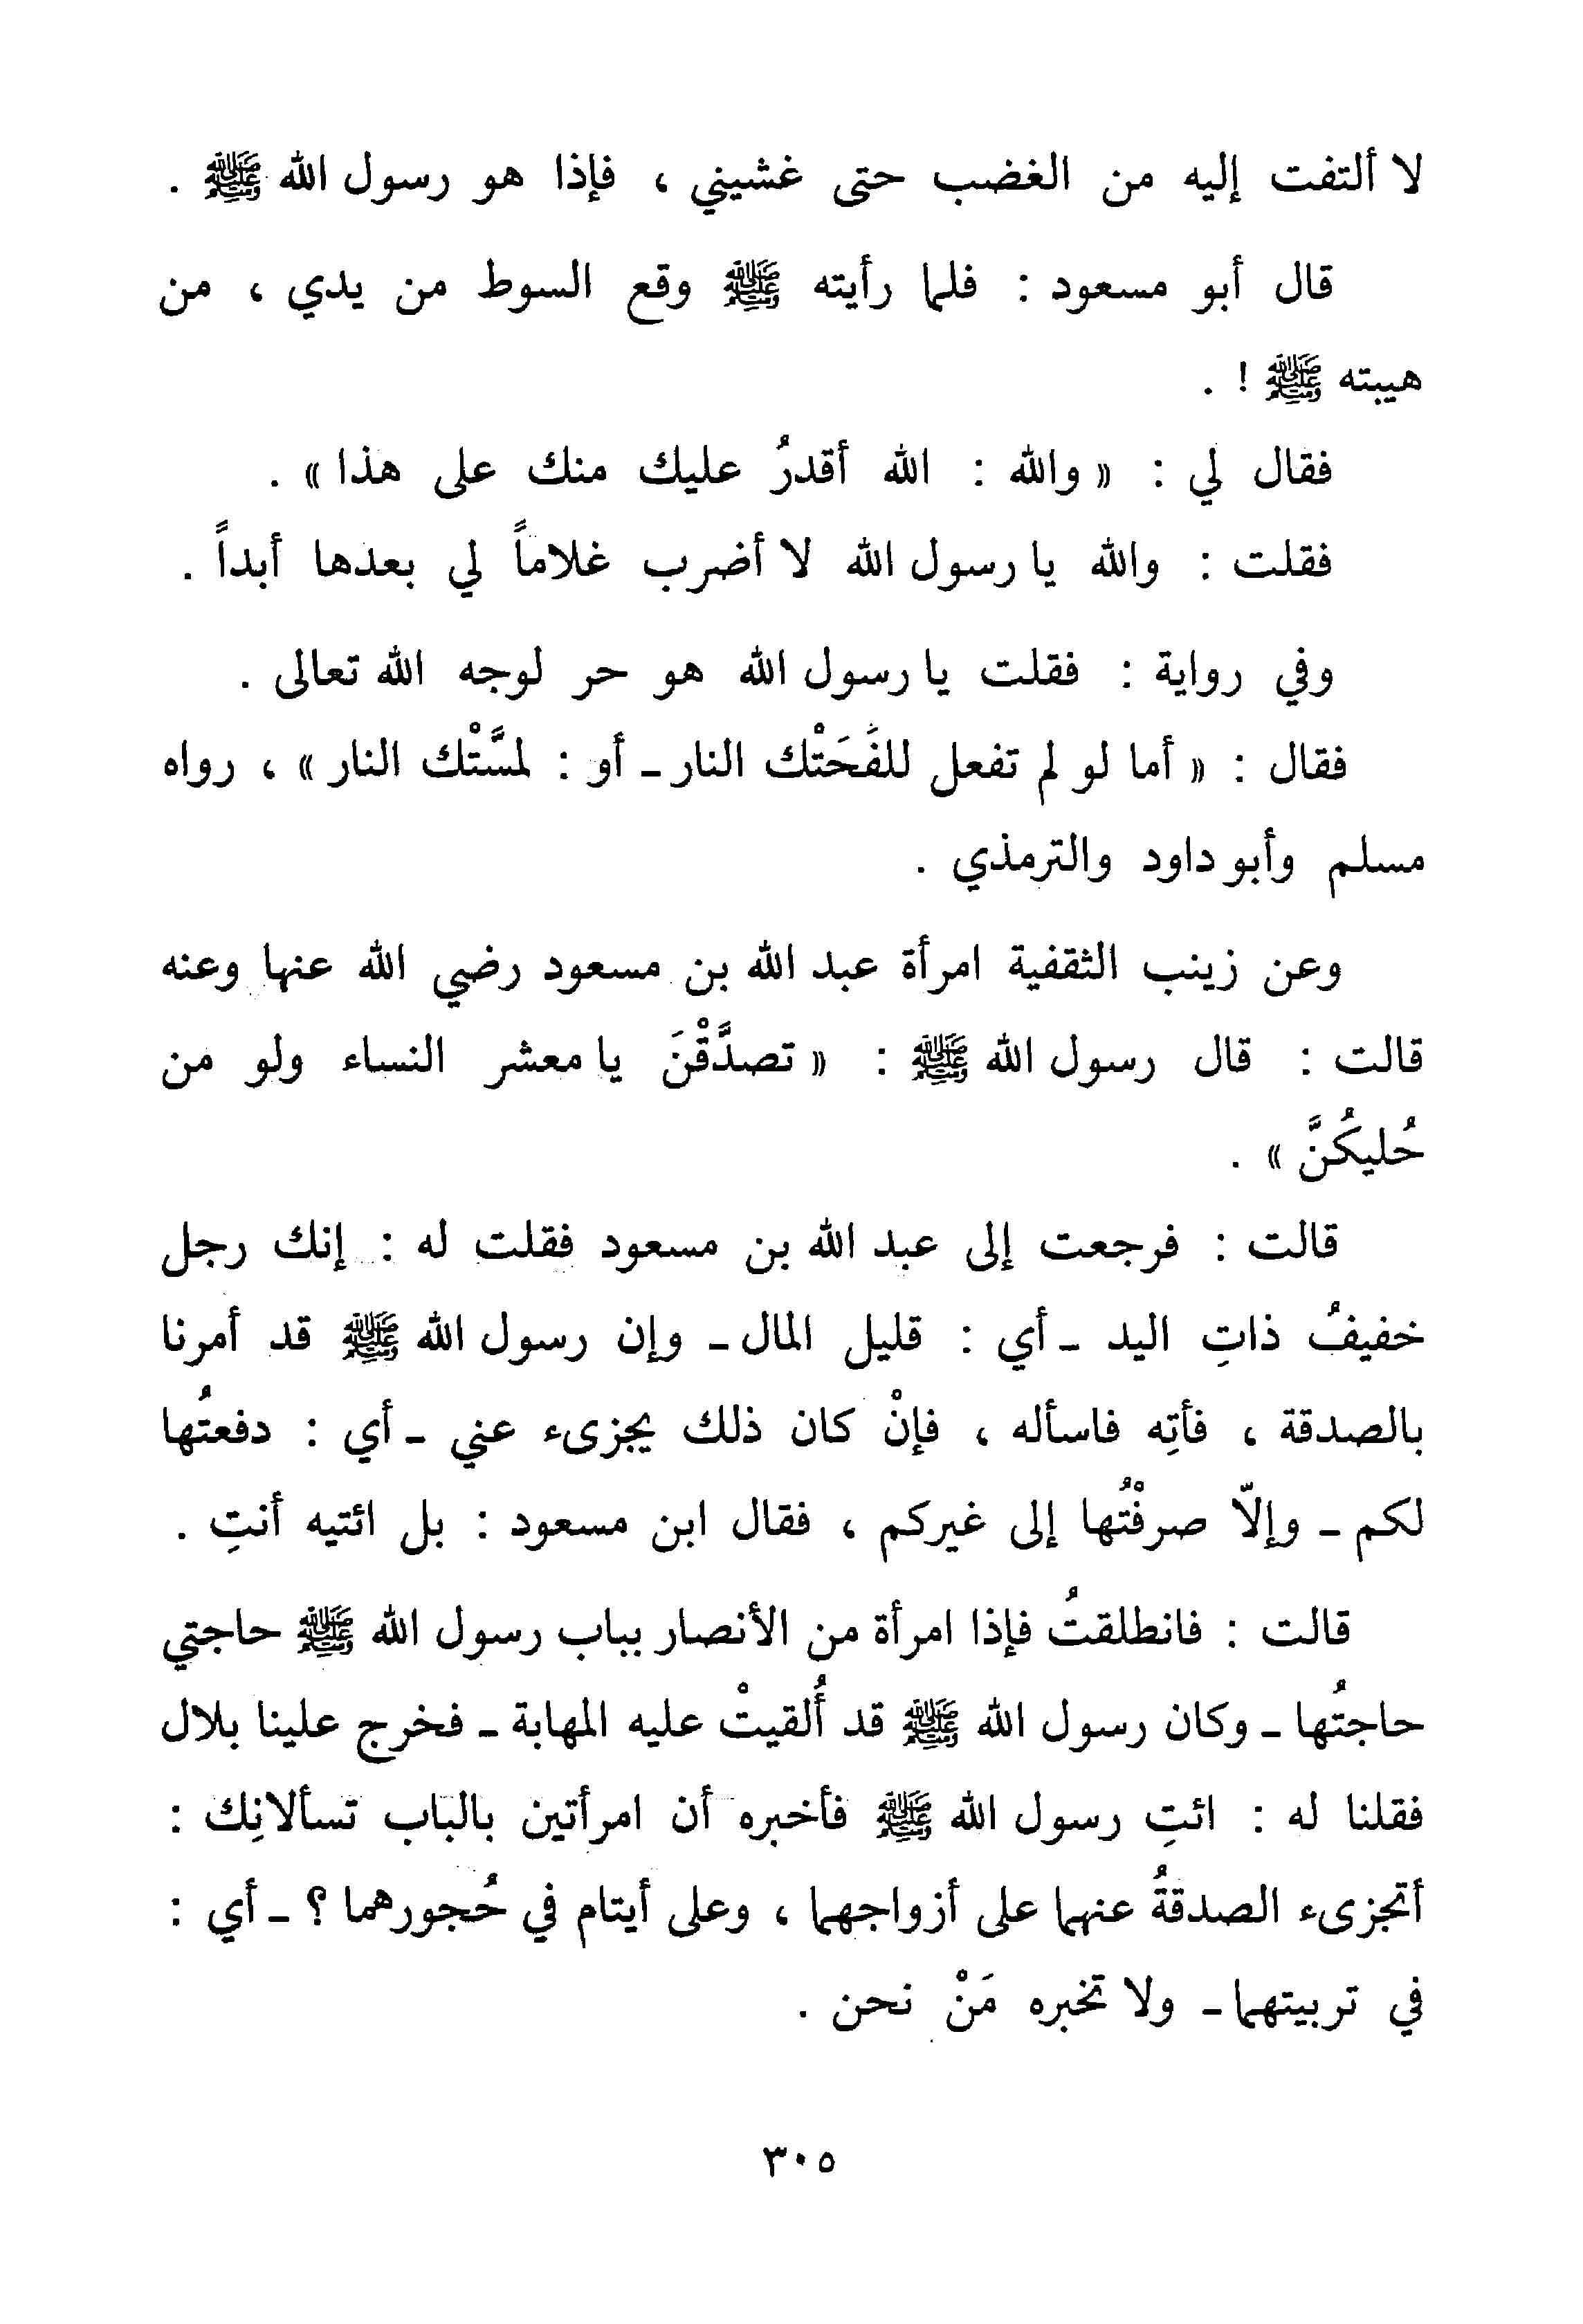 لا ألتفت إليه من الغضب حتى غشيني ، فإذا هو رسول الله ﷺ .
قال أبو مسعود : فلما رأيته ﷺ وقع السوط من يدي ، من
هيبته ﷺ ! .
فقال لي : « والله : الله أقدرُ عليك منك على هذا » .
فقلت : والله يا رسول الله لا أضرب غلاماً لي بعدها أبداً .
وفي رواية : فقلت يا رسول الله هو حر لوجه الله تعالى .
فقال : « أما لو لم تفعل للفَحَتْك النار ـ أو : لمسَّتْك النار » ، رواه
مسلم وأبو داود والترمذي .
وعن زينب الثقفية امرأة عبد الله بن مسعود رضي الله عنها وعنه
قالت : قال رسول الله ﷺ : « تصدَّقْنَ يا معشر النساء ولو من
حُليكُنَّ » .
قالت : فرجعت إلى عبد الله بن مسعود فقلت له : إنك رجل
خفيفُ ذاتِ اليد ـ أي : قليل المال ـ وإن رسول الله ﷺ قد أمرنا
بالصدقة ، فأتِه فاسأله ، فإنْ كان ذلك يجزىء عني ـ أي : دفعتُها
لكم ـ وإلاّ صرفْتُها إلى غيركم ، فقال ابن مسعود : بل ائتيه أنتِ .
قالت : فانطلقتُ فإذا امرأة من الأنصار بباب رسول الله ﷺ حاجتي
حاجتُها ـ وكان رسول الله ﷺ قد أُلقيتْ عليه المهابة ـ فخرج علينا بلال
فقلنا له : ائتِ رسول الله ﷺ فأخبره أن امرأتين بالباب تسألانِك :
أتجزىء الصدقةُ عنهما على أزواجهما ، وعلى أيتام في حُجورهما ؟ ـ أي :
في تربيتهما ـ ولا تخبره مَنْ نحن .
٣٠٥